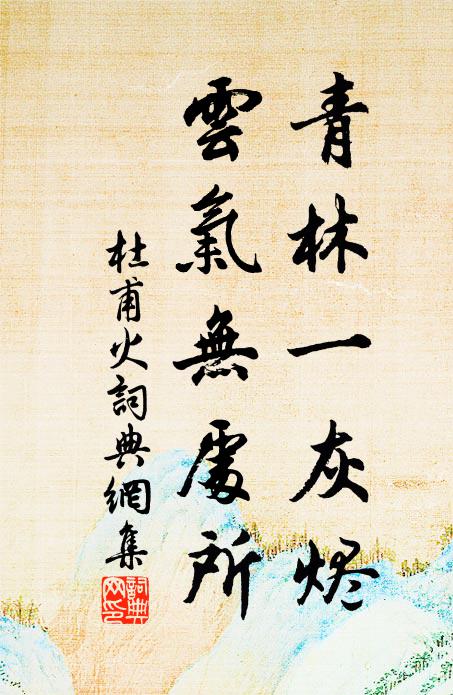 青林一灰烬
雲氣無處所
杜甫火詞典網集
詞典網印